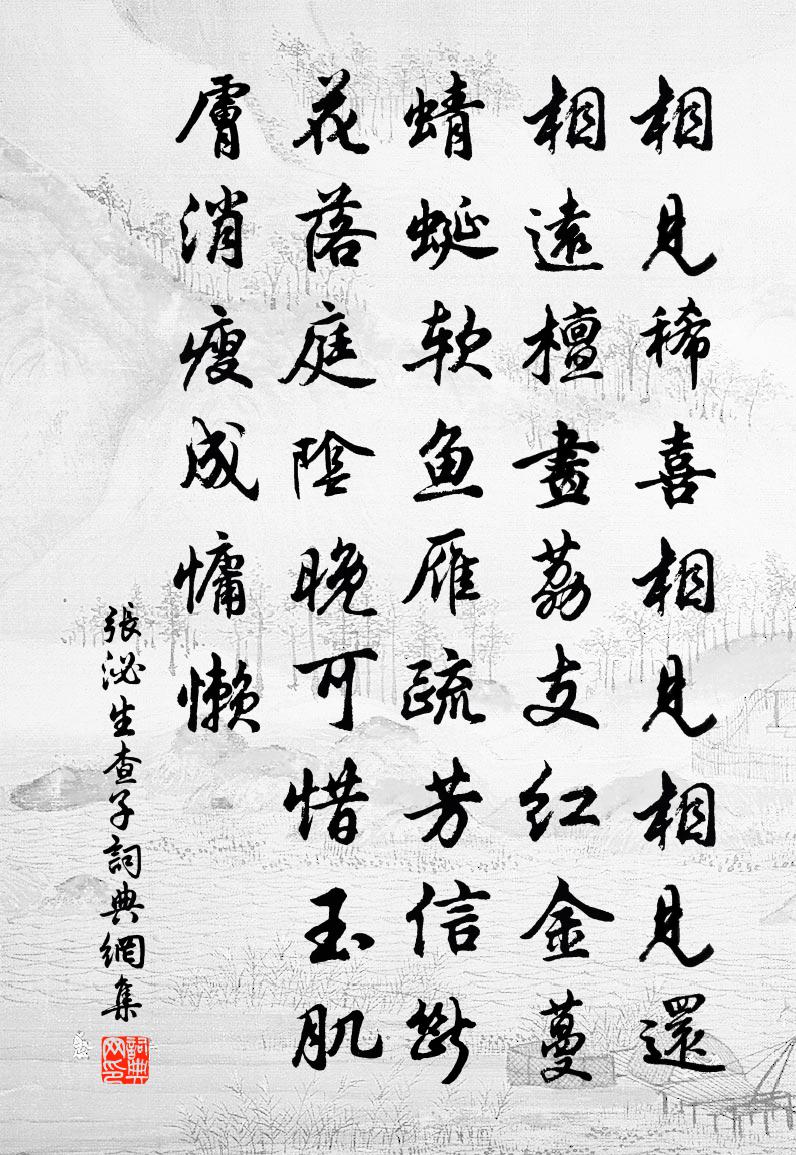 相見稀喜相見相見還
相遠檀畫荔支紅金蔓
蜻蜓软魚雁疏芳信斷
花落庭陰晚可惜玉肌
膚消瘦成慵懶
張泌生查子詞典網集
詞典網印